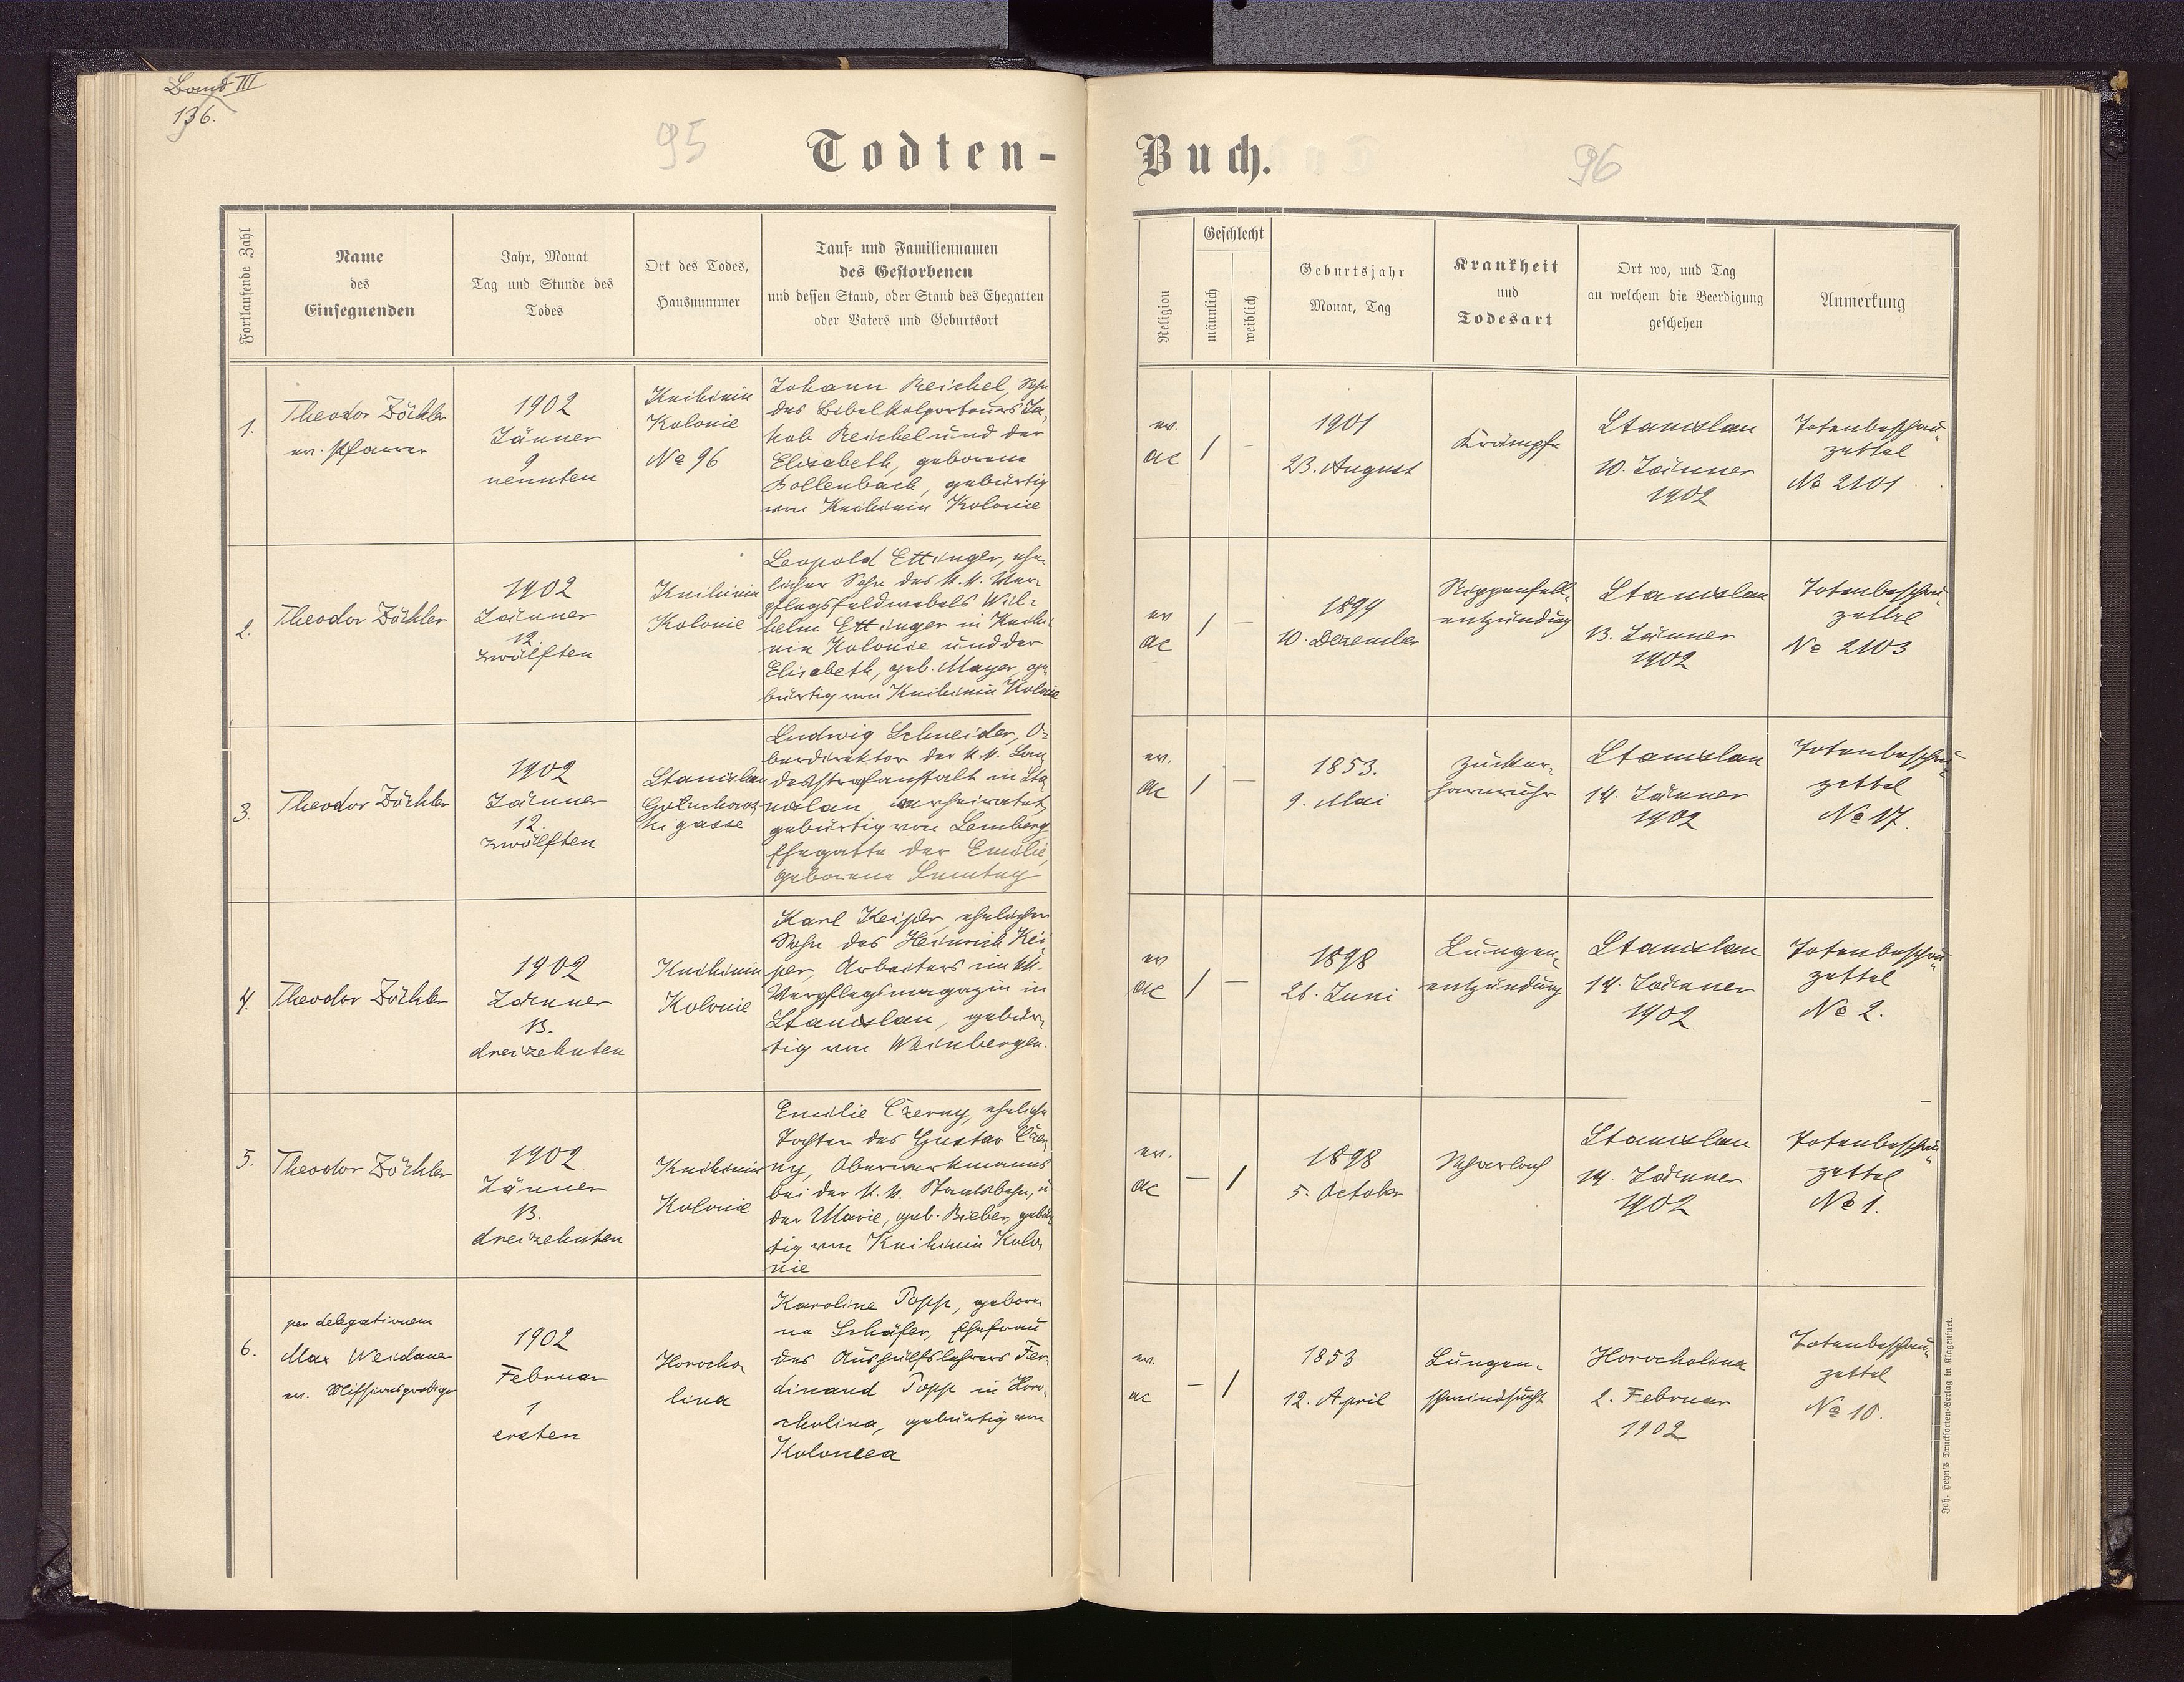 Band III
136.
95
Todten-
Buch.
96
Fortlaufende Zahl
Name
des
Einsegnenden
Jahr, Monat
Tag und Stunde des
Todes
Ort des Todes,
Hausnummer
Tauf- und Familiennamen
des Gestorbenen
und dessen Stand, oder Stand des Ehegatten
oder Vaters und Geburtsort
Religion
Geschlecht
männlich
weiblich
Geburtsjahr
Monat, Tag
Krankheit
und
Todesart
Ort wo, und Tag
an welchem die Beerdigung
geschehen
Anmerkung
1.
Theodor Zöckler
ev. Pfarrer
1902
Jänner
9
neunten
Knihinin
Kolonie
No 96
Johann Reichel, Sohn
des Bibelkolporteurs Ja-
kob Reichel und der
Elisabeth, geborene
Bollenbach, gebürtig
von Knihinin Kolonie
ev.
ac
/ –
1901
23. August
Krämpfe
Stanislau
10. Jänner
1902
Totenbeschau-
zettel
No 2101.
2.
Theodor Zöckler
1902
Jänner
12.
zwölften
Knihinin
Kolonie
Leopold Ettinger, ehe-
licher Sohn des k.k. Ver-
pflegsfeldwebels Wil-
helm Ettinger in Knihi-
nin Kolonie und der
Elisabeth, geb. Mayer, ge-
bürtig von Knihinin Kolonie
ev
ac
/ –
1899
10. Dezember
Rippenfell-
entzündung
Stanislau
13. Jänner
1902
Totenbeschau-
zettel
No 2103
3.
Theodor Zöckler
1902
Jänner
12.
zwölften
Stanislau
Gołuchows-
kigasse
Ludwig Schneider, O-
berdirektor der k.k. Lan-
desstrafanstalt in Sta-
nislau, verheiratet,
gebürtig von Lemberg
Ehegatte der Emilie,
geborene
ev.
ac
/ –
1853.
9. Mai
Zucker-
harnruhr
Stanislau
14. Jänner
1902
Totenbeschau-
zettel
No 17.
4.
Theodor Zöckler
1902
Jänner
13.
dreizehnten
Knihinin
Kolonie
Karl Keiper, ehelicher
Sohn des Heinrich Kei-
per, Arbeiters im kk.
Verpflegsmagazin in
Stanislau, gebür-
tig von Weinbergen.
ev
ac
/ –
1898
26. Juni
Lungen-
entzündung
Stanislau
14. Jänner
1902
Totenbeschau-
zettel
No 2.
5.
Theodor Zöckler
1902
Jänner
13.
dreizehnten
Knihinin
Kolonie
Emilie Czerny, eheliche
Tochter des Gustav Czer-
ny, Oberwerkmanns
bei der k.k. Staatsbahn, u
der Marie, geb. Bieber, gebür-
tig von Knihinin Kolo-
nie
ev.
ac
– /
1898
5. October
Scharlach
Stanislau
14. Jänner
1902
Totenbeschau-
zettel
No 1.
6.
per delegationem
Max Weidauer
ev. Missionsprediger
1902
Februar
1
ersten
Horocho-
lina
Karoline Popp, gebore-
ne Schäfer, Ehefrau
des Aushülfslehrers Fer-
dinand Popp in Horo-
cholina, gebürtig von
Kolomea
ev.
ac
– /
1853
12. April
Lungen-
schwindsucht
Horocholina
2. Februar
1902
Totenbeschau-
zettel
No 10.
Joh. Heyn's Drucksorten-Verlag in Klagenfurt.